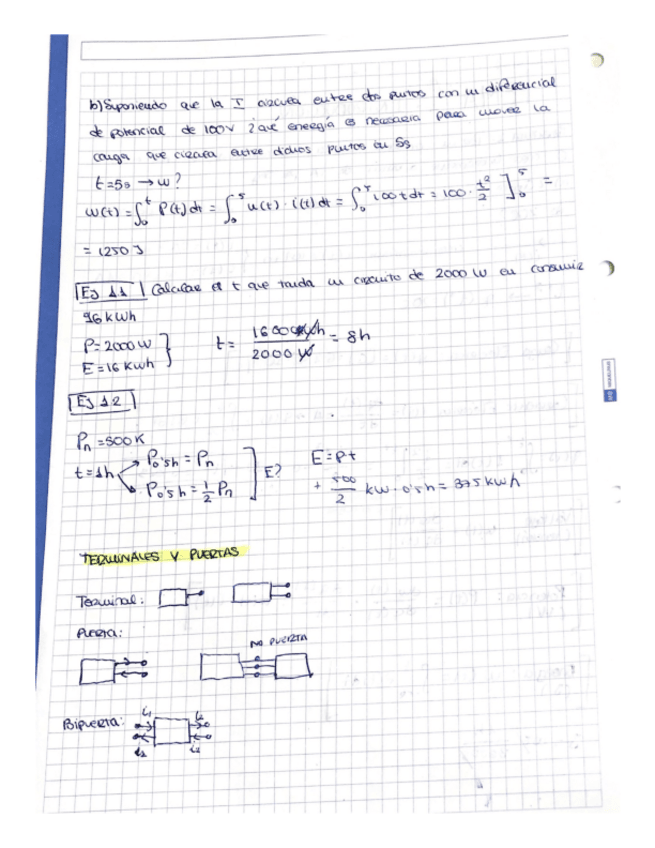 b) Suponiendo que la I circula entre dos puntos con un diferencial
de potencial de 100V ¿qué energía es necesaria para mover la
carga que circula entre dichos puntos en 5s
t=5s → w?
w(t) = ∫₀ᵗ P(t) dt = ∫₀⁵ u(t) · i(t) dt = ∫₀⁵ 100 t dt = 100 · t²/2 ]₀⁵ =
= 1250 J
Ej 11 Calcular el t que tarda un circuito de 2000 W en consumir
16 kWh
P = 2000 W
E = 16 Kwh
t = 16000 Wh / 2000 W = 8h
Ej 12
Pn = 500 K
t = 1h
P0'5h = Pn
P0'5h = 1/2 Pn
E?
E = P t
+ 500/2 kW · 0'5h = 375 kWh
TERMINALES Y PUERTAS
Terminal:
Puerta:
NO PUERTA
Bipuerta:
i₁
i₂
i₁
i₂